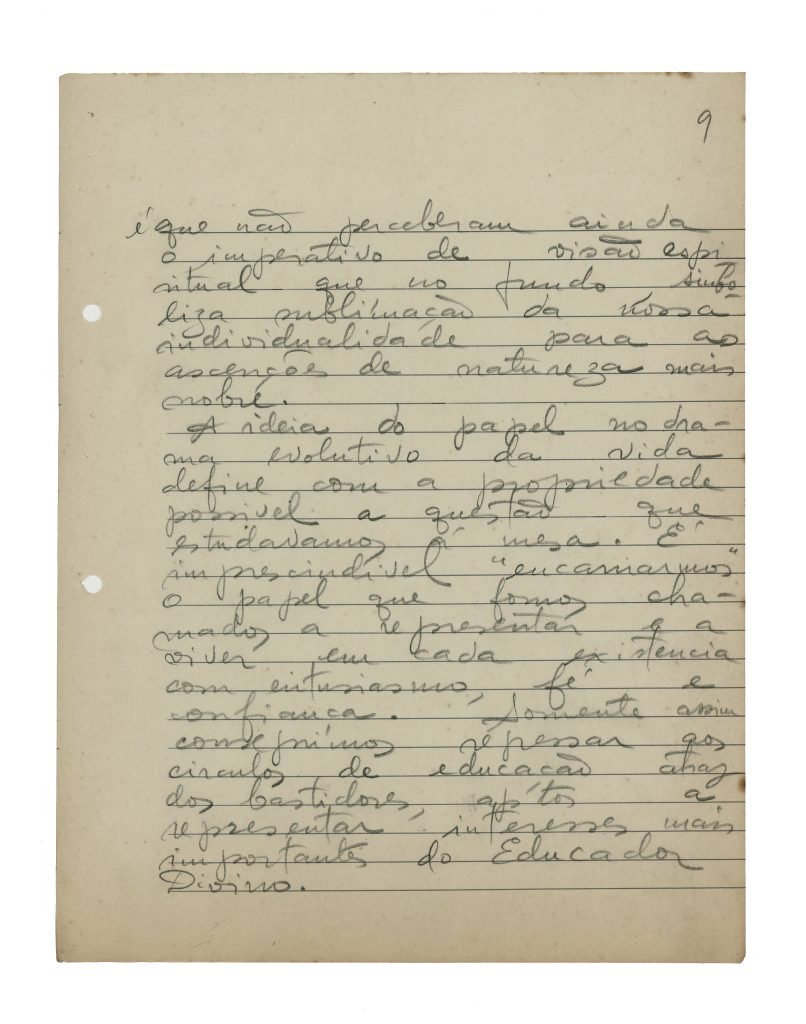 9
é que não perceberam ainda
o imperativo de visão espi
ritual que no fundo simbo
liza sublimação da nossa
individualidade para as
ascenções de natureza mais
nobre.
A ideia do papel no dra-
ma evolutivo da vida
define com a propriedade
possivel a questão que
estudavamos á mesa. É
imprescindivel "encarnarmos"
o papel que fomos cha-
mados a representar e a
viver em cada existencia
com entusiasmo, fé e
confiança. Somente assim
conseguimos regressar aos
circulos de educação atraz
dos bastidores, aptos a
representar interesses mais
importantes do Educador
Divino.